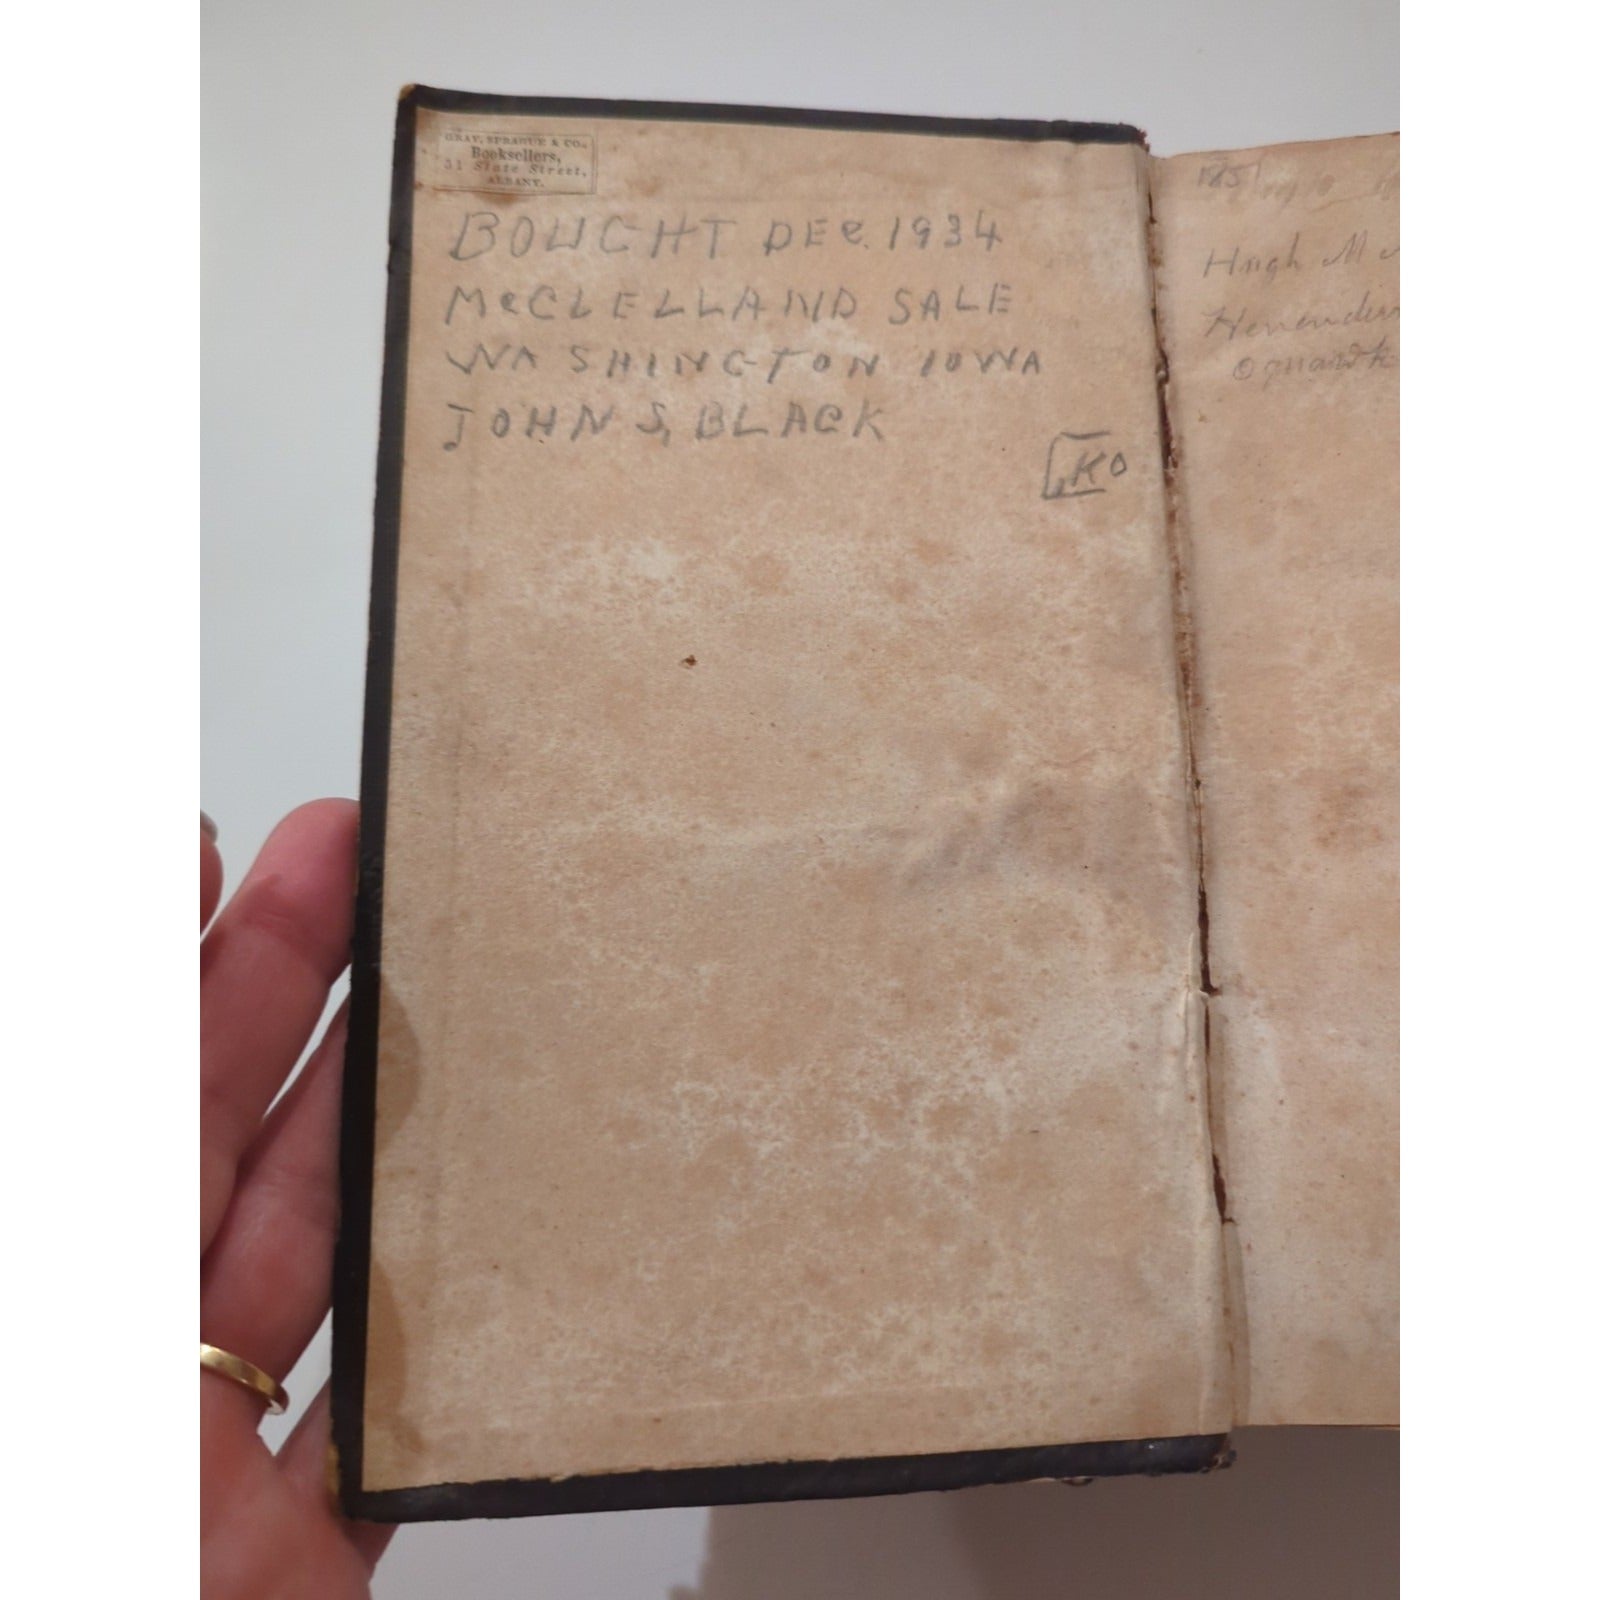 GRAY, SPRAGUE & CO.,
Booksellers,
51 State Street,
ALBANY.
BOUGHT DEC. 1934
McCLELLAND SALE
WASHINGTON IOWA
JOHN S, BLACK
KO
1851
Hugh M